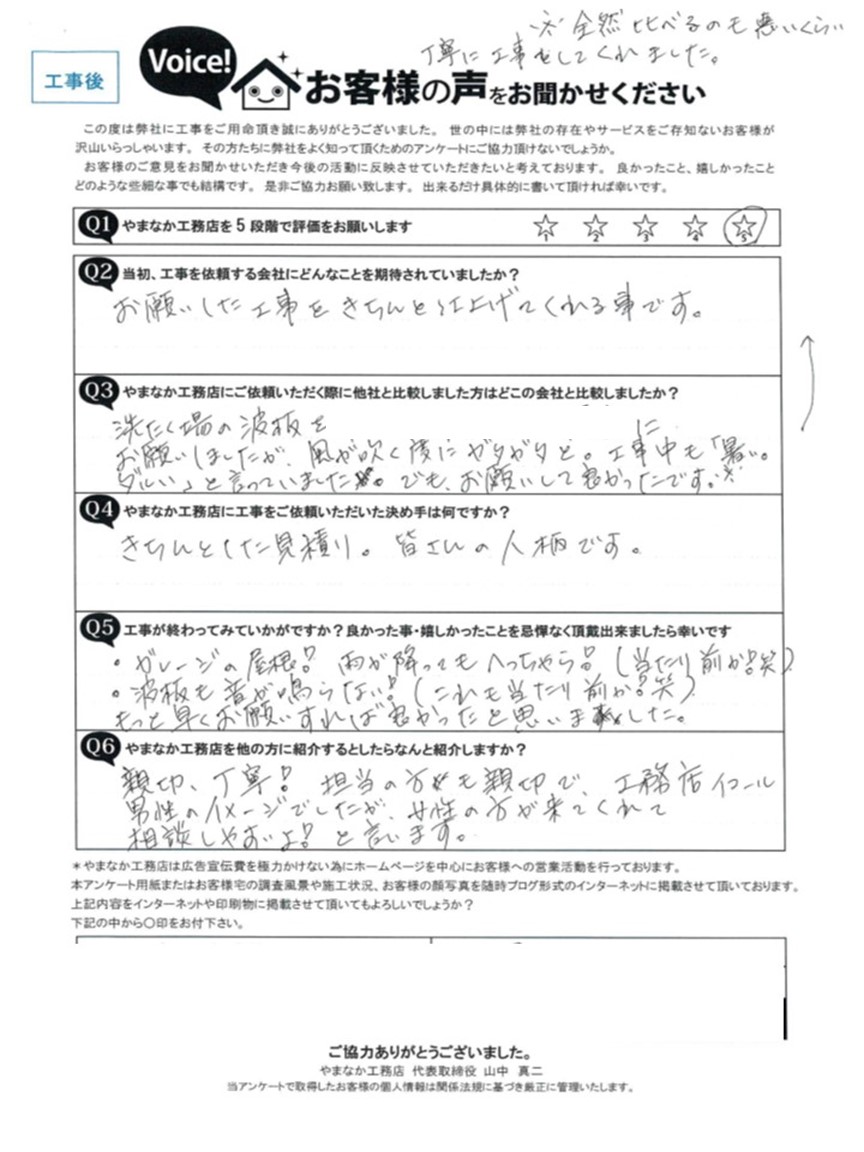 ※全然比べるのも悪いくらい
丁寧に工事をしてくれました。
工事後
Voice!
お客様の声をお聞かせください
この度は弊社に工事をご用命頂き誠にありがとうございました。 世の中には弊社の存在やサービスをご存知ないお客様が
沢山いらっしゃいます。 その方たちに弊社をよく知って頂くためのアンケートにご協力頂けないでしょうか。
お客様のご意見をお聞かせいただき今後の活動に反映させていただきたいと考えております。 良かったこと、嬉しかったこと
どのような些細な事でも結構です。 是非ご協力お願い致します。 出来るだけ具体的に書いて頂ければ幸いです。
Q1 やまなか工務店を5段階で評価をお願いします
1 2 3 4 5
Q2 当初、工事を依頼する会社にどんなことを期待されていましたか？
お願いした工事をきちんと仕上げてくれる事です。
Q3 やまなか工務店にご依頼いただく際に他社と比較しました方はどこの会社と比較しましたか？
洗たく場の波板を に
お願いしましたが、風が吹く度にガタガタと。工事中も「暑い。
ダルい」と言っていました。でも、お願いして良かったです。※
Q4 やまなか工務店に工事をご依頼いただいた決め手は何ですか？
きちんとした見積り。皆さんの人柄です。
Q5 工事が終わってみていかがですか？良かった事・嬉しかったことを忌憚なく頂戴出来ましたら幸いです
・ガレージの屋根！雨が降ってもへっちゃら！（当たり前か！笑）
・波板も音が鳴らない！（これも当たり前か！笑）
もっと早くお願いすれば良かったと思いました。
Q6 やまなか工務店を他の方に紹介するとしたらなんと紹介しますか？
親切、丁寧！担当の方も親切で、工務店イコール
男性のイメージでしたが、女性の方が来てくれて
相談しやすいよ！と言います。
＊やまなか工務店は広告宣伝費を極力かけない為にホームページを中心にお客様への営業活動を行っております。
本アンケート用紙またはお客様宅の調査風景や施工状況、お客様の顔写真を随時ブログ形式のインターネットに掲載させて頂いております。
上記内容をインターネットや印刷物に掲載させて頂いてもよろしいでしょうか？
下記の中から〇印をお付下さい。
ご協力ありがとうございました。
やまなか工務店 代表取締役 山中 真二
当アンケートで取得したお客様の個人情報は関係法規に基づき厳正に管理いたします。